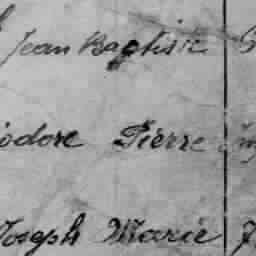 Jean Baptiste
odore Pierre
Joseph Marie